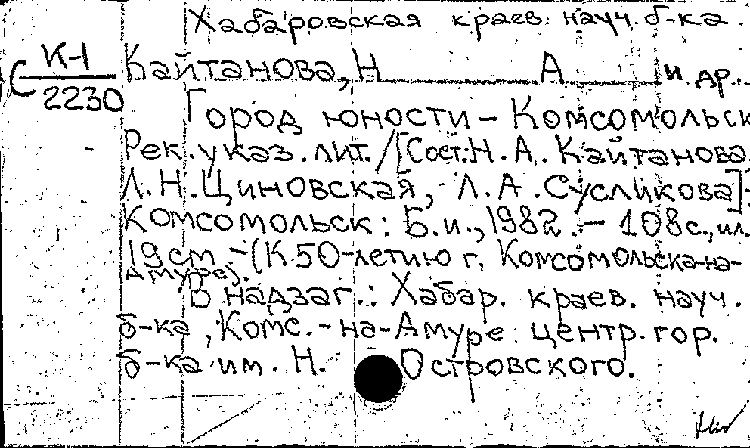 Хабаровская краев. науч. б-ка.
К-1
С 2230
Кайтанова, Н А и др.
Город юности - Комсомольск
Рек. указ. лит. / [Сост. Н. А. Кайтанова
Л. Н. Циновская, Л. А. Сусликова].
Комсомольск: Б. и., 1982. - 108 с., ил.
19 см. - (К 50-летию г. Комсомольска-на-
Амуре).
В надзаг.: Хабар. краев. науч.
б-ка, Комс.-на-Амуре центр. гор.
б-ка им. Н. Островского.